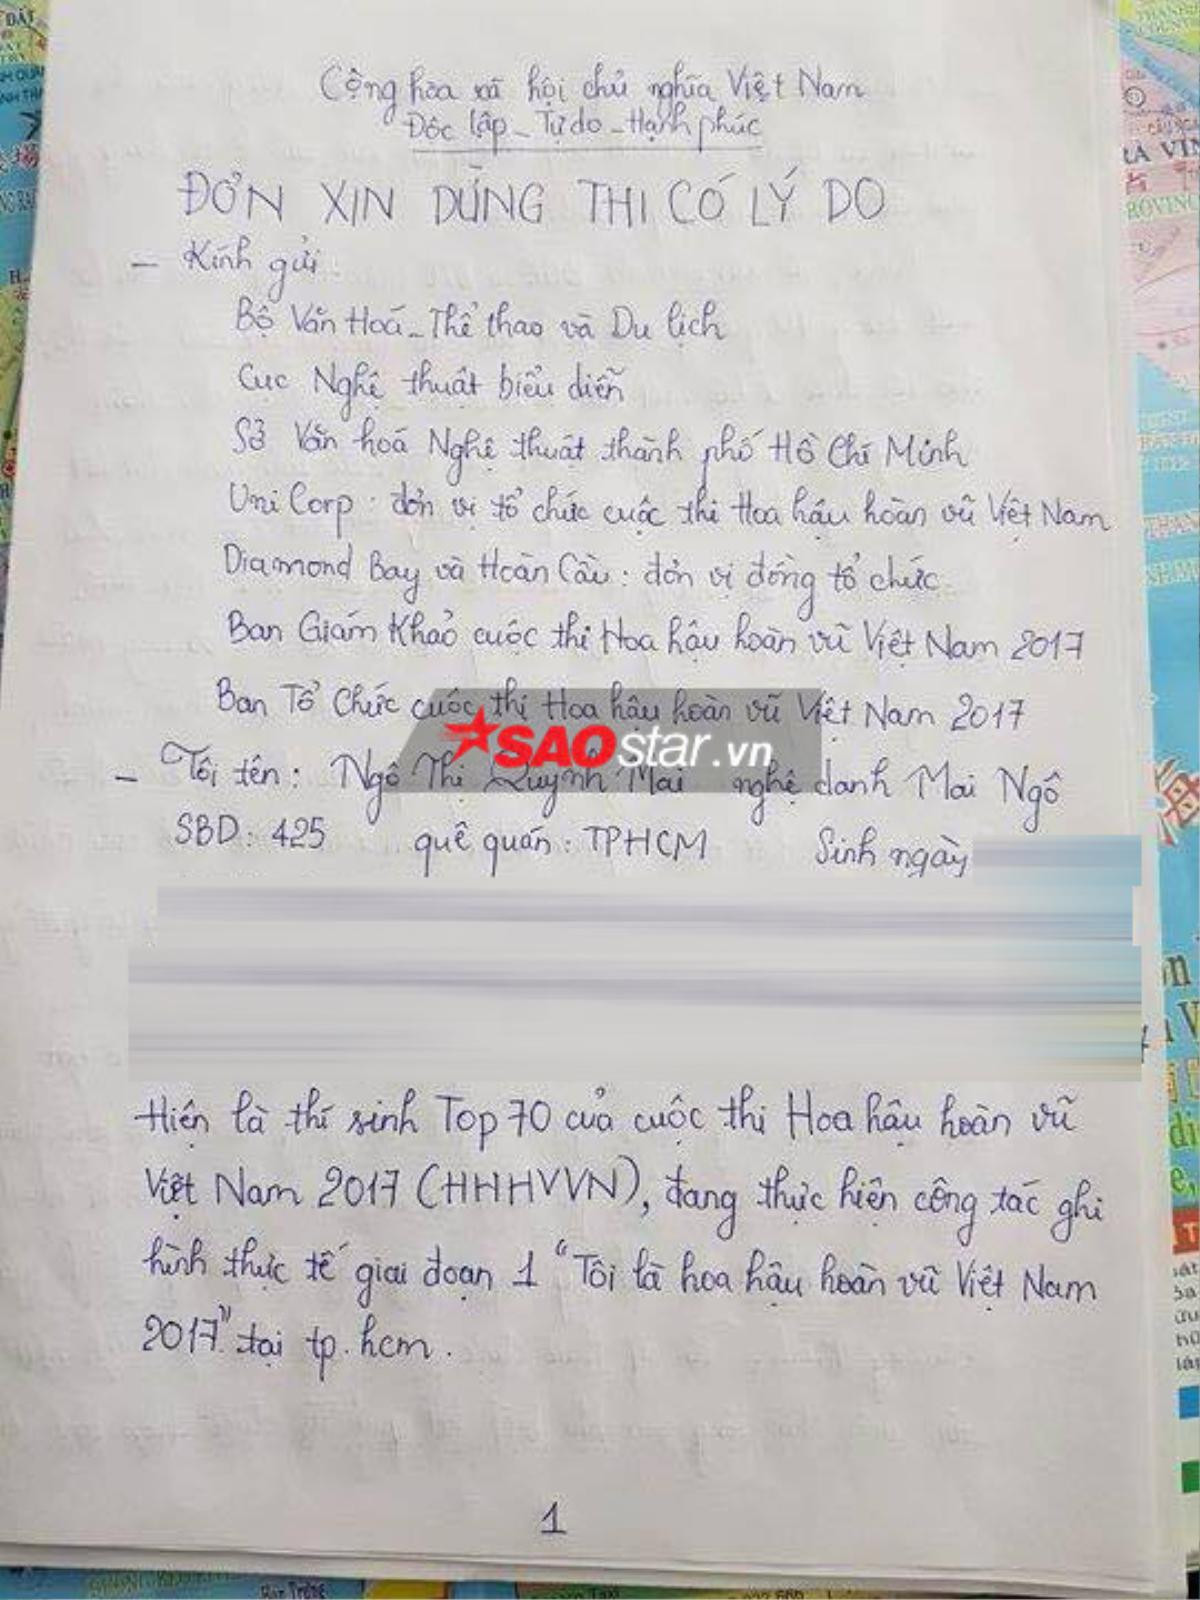 Cộng hòa xã hội chủ nghĩa Việt Nam
Độc lập - Tự do - Hạnh phúc
ĐƠN XIN DỪNG THI CÓ LÝ DO
- Kính gửi:
Bộ Văn Hoá - Thể thao và Du lịch
Cục Nghệ thuật biểu diễn
Sở Văn hoá Nghệ thuật thành phố Hồ Chí Minh
Uni Corp: đơn vị tổ chức cuộc thi Hoa hậu hoàn vũ Việt Nam
Diamond Bay và Hoàn Cầu: đơn vị đồng tổ chức
Ban Giám Khảo cuộc thi Hoa hậu hoàn vũ Việt Nam 2017
Ban Tổ Chức cuộc thi Hoa hậu hoàn vũ Việt Nam 2017
SAOstar.vn
- Tôi tên: Ngô Thị Quỳnh Mai nghệ danh Mai Ngô
SBD: 425 quê quán: TPHCM Sinh ngày
Hiện là thí sinh Top 70 của cuộc thi Hoa hậu hoàn vũ
Việt Nam 2017 (HHHVVN), đang thực hiện công tác ghi
hình thực tế giai đoạn 1 "Tôi là hoa hậu hoàn vũ Việt Nam
2017" tại tp. hcm.
1